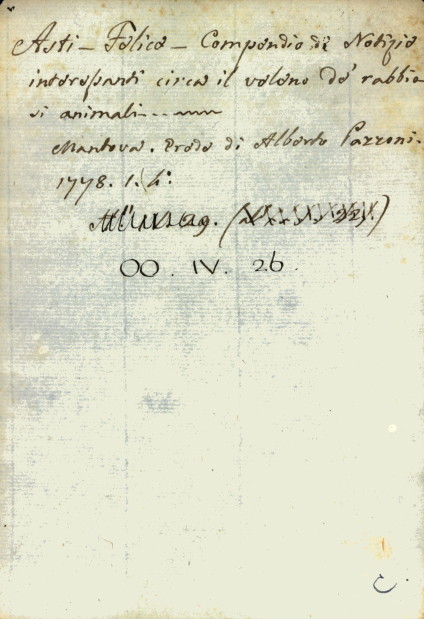 Asti - Felice - Compendio di Notizie
interessanti circa il veleno de' rabbio
si animali
Mantova. Erede di Alberto Pazzoni.
1778. 1. 4:
OO. IV. 26.
C.